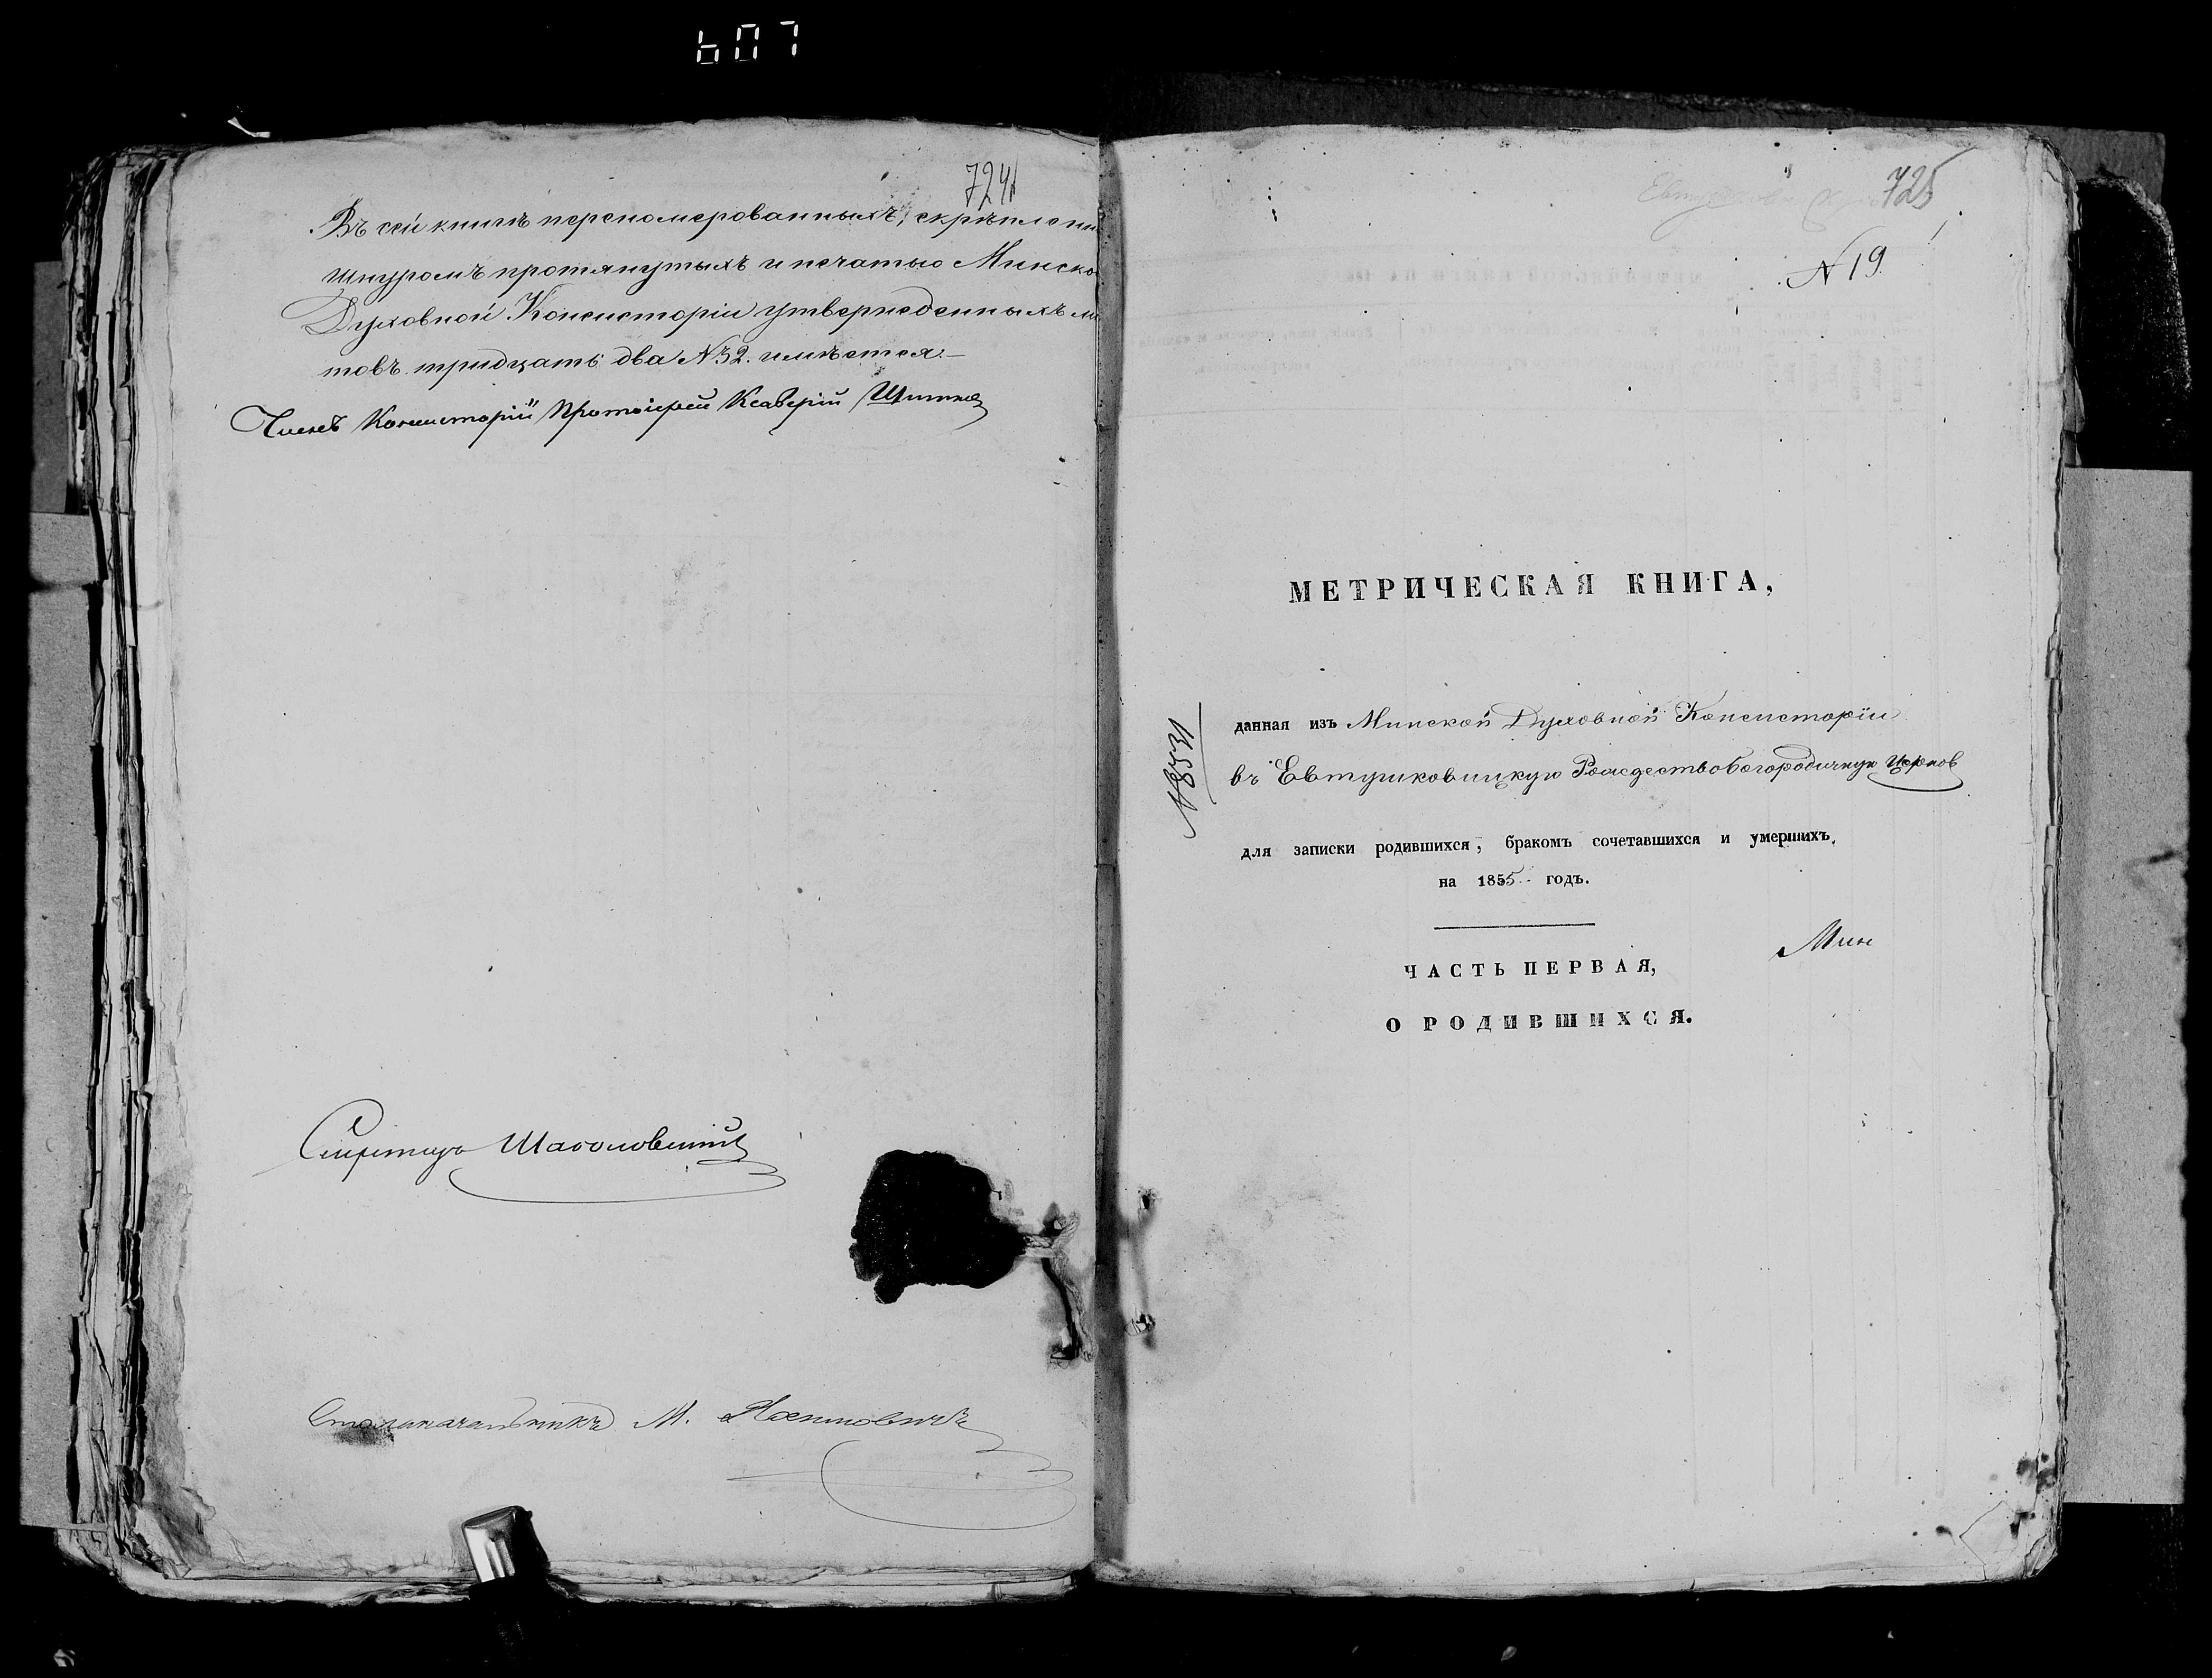 607
724
Въ сей книгѣ переномерованныхъ, скрѣплен
шнуромъ протянутыхъ и печатью Минско
Духовной Консисторіи утвержденныхъ ли
товъ тридцать два №32. имѣется.—
Членъ Консисторіи Протоіерей Ксаверій
Секретарь
Столоначальникъ М.
725
№ 19.
МЕТРИЧЕСКАЯ КНИГА,
данная изъ Минской Духовной Консисторіи
въ Евтушковицкую Рождествобогородичную Церков
№8531
для записки родившихся, бракомъ сочетавшихся и умершихъ,
на 1855 годъ.
Мин
ЧАСТЬ ПЕРВАЯ,
О РОДИВШИХСЯ.